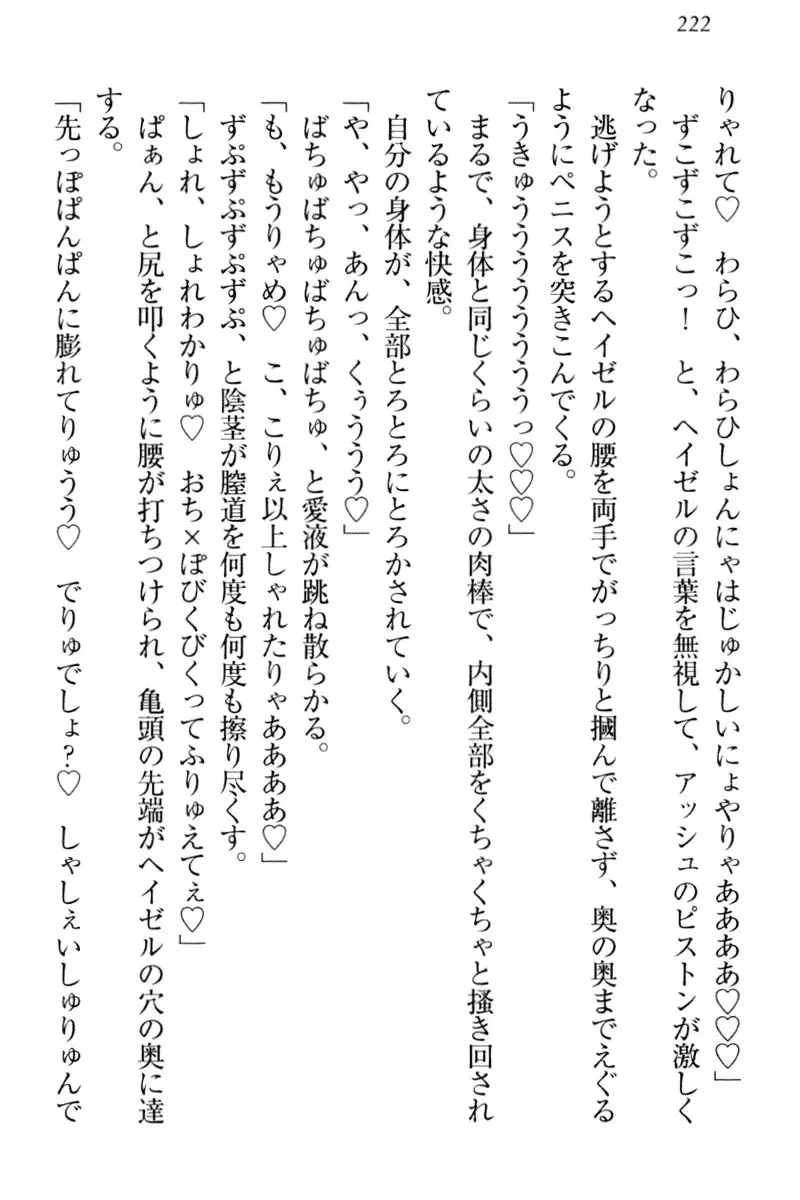 222
りゃれて♡　わらひ、わらひしょんにゃはじゅかしいにょやりゃああああ♡♡♡」
　ずこずこずこっ！　と、ヘイゼルの言葉を無視して、アッシュのピストンが激しく
なった。
　逃げようとするヘイゼルの腰を両手でがっちりと摑んで離さず、奥の奥までえぐる
ようにペニスを突きこんでくる。
「うきゅううううううううっ♡♡♡」
　まるで、身体と同じくらいの太さの肉棒で、内側全部をくちゃくちゃと搔き回され
ているような快感。
　自分の身体が、全部とろとろにとろかされていく。
「や、やっ、あんっ、くぅううう♡」
　ばちゅばちゅばちゅばちゅ、と愛液が跳ね散らかる。
「も、もうりゃめ♡　こ、こりぇ以上しゃれたりゃああああ♡」
　ずぷずぷずぷずぷ、と陰茎が膣道を何度も何度も擦り尽くす。
「しょれ、しょれわかりゅ♡　おち×ぽびくびくってふりゅえてぇ♡」
　ぱぁん、と尻を叩くように腰が打ちつけられ、亀頭の先端がヘイゼルの穴の奥に達
する。
「先っぽぱんぱんに膨れてりゅうう♡　でりゅでしょ？♡　しゃしぇいしゅりゅんで